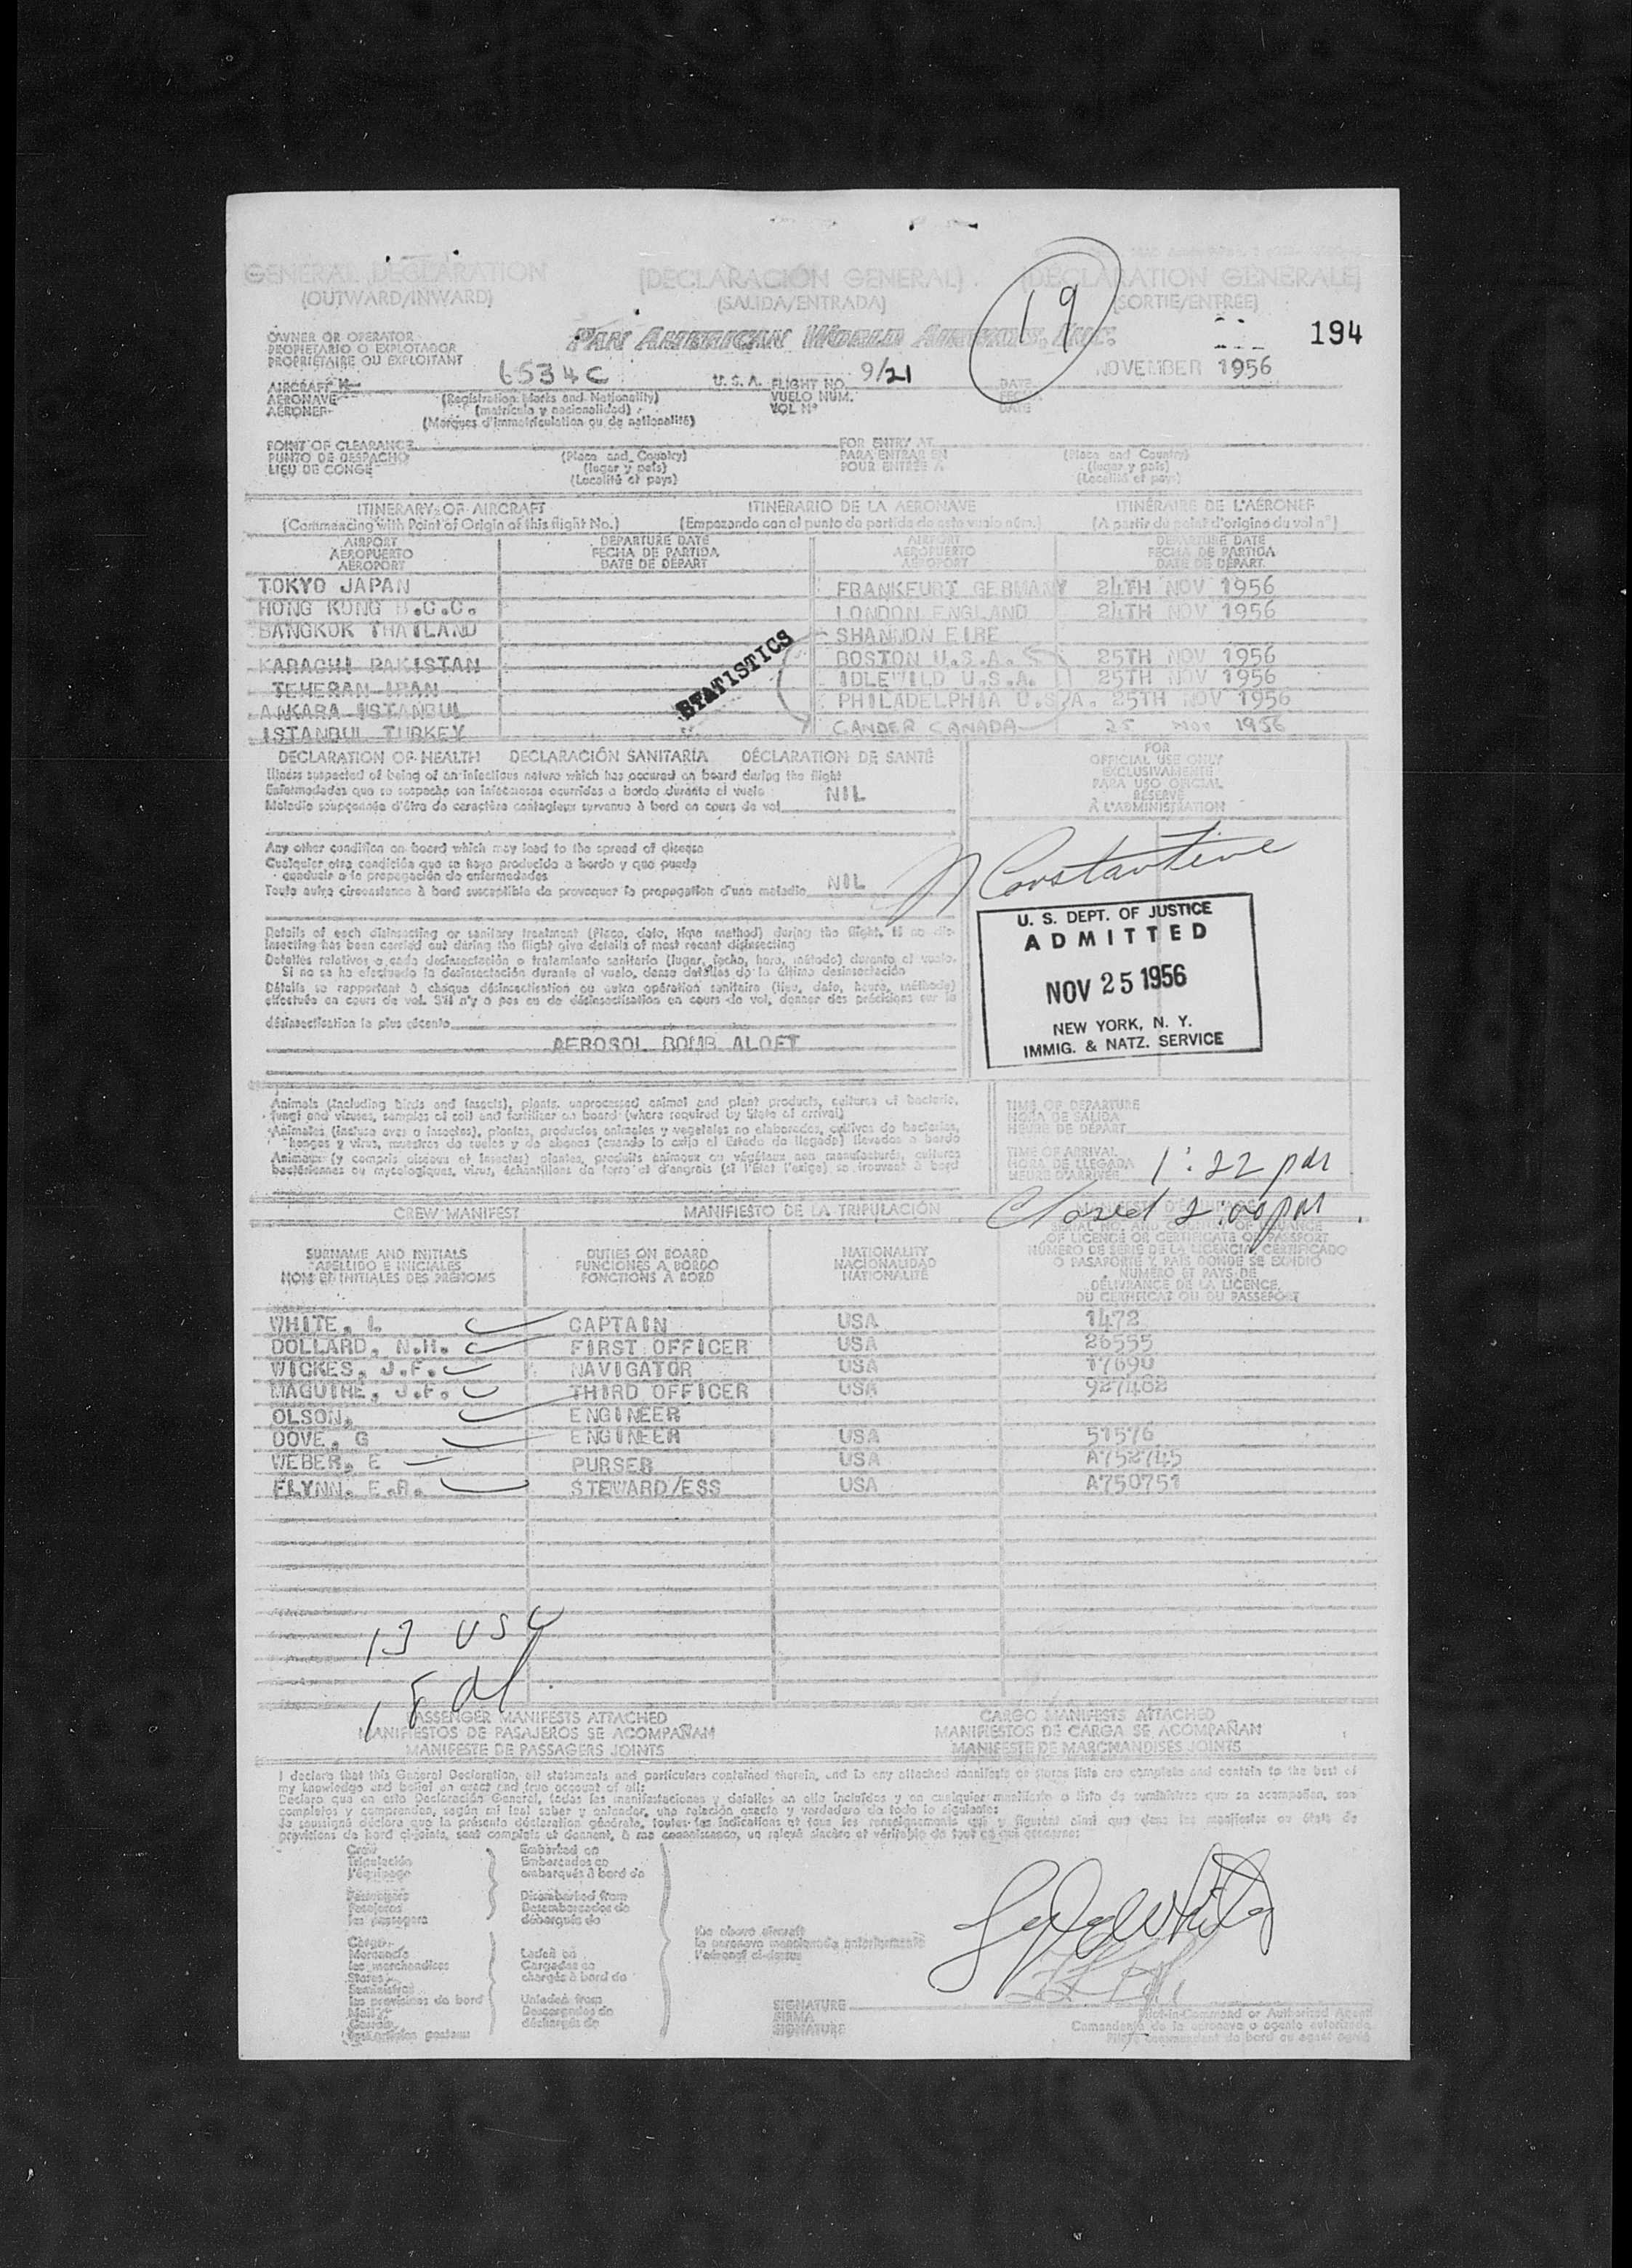 GENERAL DECLARATION [DECLARACIÓN GENERAL] [DECLARATION GÉNÉRALE]
(OUTWARD/INWARD) (SALIDA/ENTRADA) (SORTIE/ENTRÉE)
19
OWNER OR OPERATOR
PROPIETARIO O EXPLOTADOR
PROPRIÉTAIRE OU EXPLOITANT
PAN AMERICAN WORLD AIRWAYS, INC.
194
NOVEMBER 1956
AIRCRAFT N 6534C U. S. A. FLIGHT NO. 9/21 DATE
AERONAVE (Registration Marks and Nationality) VUELO NUM. FECHA
AÉRONEF (matrícula y nacionalidad) VOL Nº DATE
(Marques d'immatriculation ou de nationalité)
POINT OF CLEARANCE FOR ENTRY AT
PUNTO DE DESPACHO (Place and Country) PARA ENTRAR EN (Place and Country)
LIEU DE CONGÉ (lugar y país) POUR ENTRÉE À (lugar y país)
(Localité et pays) (Localité et pays)
ITINERARY OF AIRCRAFT ITINERARIO DE LA AERONAVE ITINÉRAIRE DE L'AÉRONEF
(Commencing with Point of Origin of this flight No.) (Empezando con el punto de partida de este vuelo núm.) (A partir du point d'origine du vol nº)
AIRPORT DEPARTURE DATE AIRPORT DEPARTURE DATE
AEROPUERTO FECHA DE PARTIDA AEROPUERTO FECHA DE PARTIDA
AÉROPORT DATE DE DÉPART AÉROPORT DATE DE DÉPART
TOKYO JAPAN FRANKFURT GERMANY 24TH NOV 1956
HONG KONG B.C.C. LONDON ENGLAND 24TH NOV 1956
BANGKOK THAILAND SHANNON EIRE
KARACHI PAKISTAN BOSTON U.S.A. 25TH NOV 1956
TEHERAN IRAN IDLEWILD U.S.A. 25TH NOV 1956
ANKARA ISTANBUL PHILADELPHIA U.S.A. 25TH NOV 1956
ISTANBUL TURKEY GANDER CANADA 25 Nov 1956
STATISTICS
DECLARATION OF HEALTH DECLARACIÓN SANITARIA DÉCLARATION DE SANTÉ
Illness suspected of being of an infectious nature which has occured on board during the flight
Enfermedades que se sospecha son infecciosas ocurridas a bordo durante el vuelo NIL
Maladie soupçonnée d'être de caractère contagieux survenue à bord en cours de vol
FOR
OFFICIAL USE ONLY
EXCLUSIVAMENTE
PARA USO OFICIAL
RÉSERVÉ
À L'ADMINISTRATION
Any other condition on board which may lead to the spread of disease
Cualquier otra condición que se haya producido a bordo y que pueda
conducir a la propagación de enfermedades
Toute autre circonstance à bord susceptible de provoquer la propagation d'une maladie NIL
N Constantine
U. S. DEPT. OF JUSTICE
ADMITTED
NOV 25 1956
NEW YORK, N. Y.
IMMIG. & NATZ. SERVICE
Details of each disinsecting or sanitary treatment (Place, date, time method) during the flight. If no dis-
insecting has been carried out during the flight give details of most recent disinsecting
Detalles relativos a cada desinsectación o tratamiento sanitario (lugar, fecha, hora, método) durante el vuelo.
Si no se ha efectuado la desinsectación durante el vuelo, dense detalles de la última desinsectación
Détails se rapportant à chaque désinsectisation ou autre opération sanitaire (lieu, date, heure, méthode)
effectuée en cours de vol. S'il n'y a pas eu de désinsectisation en cours de vol, donner des précisions sur la
désinsectisation la plus récente
AEROSOL BOMB ALOFT
Animals (including birds and insects), plants, unprocessed animal and plant products, cultures of bacteria,
fungi and viruses, samples of soil and fertilizer on board (where required by State of arrival)
Animales (incluso aves o insectos), plantas, productos animales y vegetales no elaborados, cultivos de bacterias,
hongos y virus, muestras de suelos y de abonos (cuando lo exija el Estado de llegada) llevados a bordo
Animaux (y compris oiseaux et insectes) plantes, produits animaux ou végétaux non manufacturés, cultures
bactériennes ou mycologiques, virus, échantillons de terre et d'engrais (si l'État l'exige) se trouvant à bord
TIME OF DEPARTURE
HORA DE SALIDA
HEURE DE DÉPART
TIME OF ARRIVAL
HORA DE LLEGADA
HEURE D'ARRIVÉE 1:22 pm
Closed 2.00 pm
CREW MANIFEST MANIFIESTO DE LA TRIPULACIÓN
SURNAME AND INITIALS DUTIES ON BOARD NATIONALITY
APELLIDO E INICIALES FUNCIONES A BORDO NACIONALIDAD
NOM ET INITIALES DES PRÉNOMS FONCTIONS À BORD NATIONALITÉ
SERIAL NO. AND COUNTRY OF ISSUANCE
OF LICENCE OR CERTIFICATE OR PASSPORT
NÚMERO DE SERIE DE LA LICENCIA, CERTIFICADO
O PASAPORTE Y PAÍS DONDE SE EXPIDIÓ
NUMÉRO ET PAYS DE
DÉLIVRANCE DE LA LICENCE,
DU CERTIFICAT OU DU PASSEPORT
WHITE, L CAPTAIN USA 1472
DOLLARD, N.H. FIRST OFFICER USA 26555
WICKES, J.F. NAVIGATOR USA 17690
MAGUIRE, J.F. THIRD OFFICER USA 927482
OLSON, ENGINEER
DOVE, G ENGINEER USA 51576
WEBER, E PURSER USA A752745
FLYNN, E.R. STEWARD/ESS USA A750751
13 USC
8 al
PASSENGER MANIFESTS ATTACHED CARGO MANIFESTS ATTACHED
MANIFIESTOS DE PASAJEROS SE ACOMPAÑAN MANIFIESTOS DE CARGA SE ACOMPAÑAN
MANIFESTE DE PASSAGERS JOINTS MANIFESTE DE MARCHANDISES JOINTS
I declare that this General Declaration, all statements and particulars contained therein, and in any attached manifests or stores lists are complete and contain to the best of
my knowledge and belief an exact and true account of all:
Declaro que en esta Declaración General, todas las manifestaciones y detalles en ella incluidos y en cualquier manifiesto o lista de suministros que se acompañen, son
completos y comprenden, según mi leal saber y entender, una relación exacta y verdadera de todo lo siguiente:
Je soussigné déclare que la présente déclaration générale, toutes les indications et tous les renseignements qui y figurent ainsi que dans les manifestes ou états de
provisions de bord ci-joints, sont complets et donnent, à ma connaissance, un relevé sincère et véritable de tout ce qui concerne:
Crew Embarked on
Tripulación Embarcados en
l'équipage embarqués à bord de
Passengers Disembarked from
Pasajeros Desembarcados de
les passagers débarqués de
the above aircraft
la aeronave mencionada anteriormente
l'aéronef ci-dessus
Cargo
Mercancía Laded on
les marchandises Cargadas en
Stores chargés à bord de
Suministros
les provisions de bord Unladed from
Mail Descargados de
Correo déchargés de
SIGNATURE
FIRMA
SIGNATURE
Pilot-in-Command or Authorized Agent
Comandante de la aeronave o agente autorizado